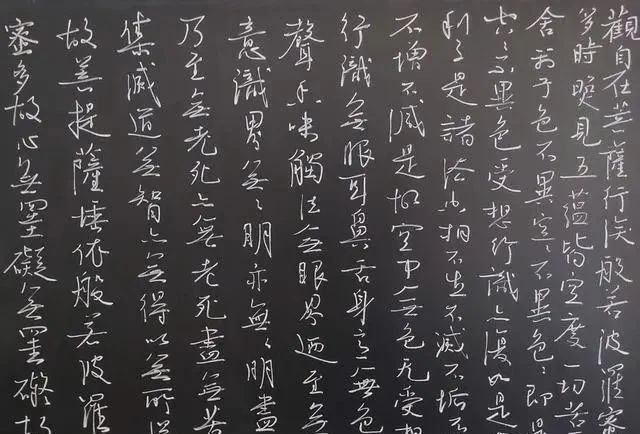 觀自在菩薩行深般若波羅蜜
多時照見五蘊皆空度一切苦
舍利子色不異空〻不異色〻即是
空〻不異色受想行識亦復如是
利子是諸法空相不生不滅不垢不
不增不減是故空中無色無受想
行識無眼耳鼻舌身意無色
聲香味觸法無眼界迺至無
意識界無〻明亦無〻明盡
乃至無老死亦無老死盡無苦
集滅道無智亦無得以無所得
故菩提薩埵依般若波羅
蜜多故心無罣礙無罣礙故